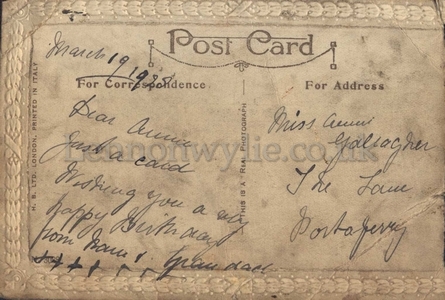 Post Card
For Correspondence
For Address
March 19
Dear Annie
Just a card
Wishing you a
happy Birthday
from Mam & Grandad
x x x x x x
Miss Annie
Gallagher
The Lane
Portaferry
H. B. LTD. LONDON, PRINTED IN ITALY
THIS IS A "REAL PHOTOGRAPH"
lennonwylie.co.uk